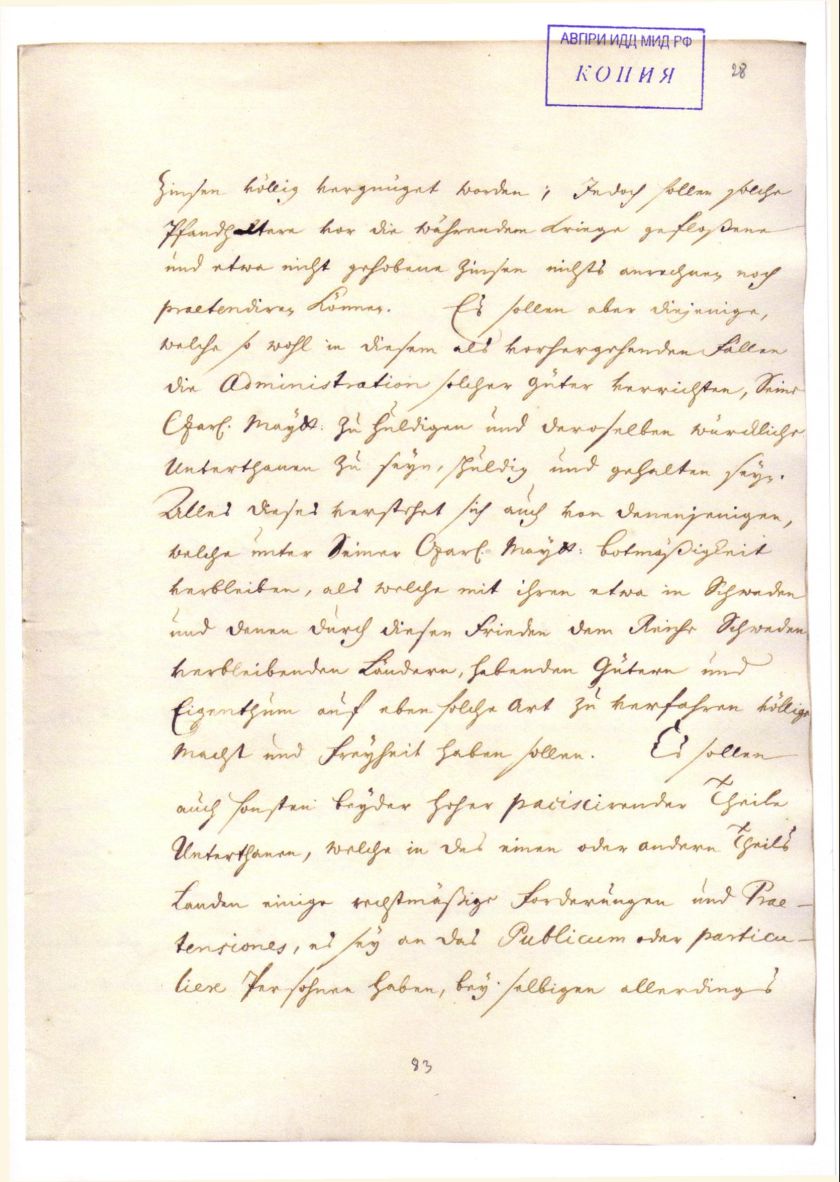 АВПРИ ИДД МИД РФ
КОПИЯ
28
Zinsen völlig vergnüget worden; Jedoch sollen solche
Pfandhaltere vor die währendem Kriege gefloßene
und etwa nicht gehobene Zinsen nichts anrechnen noch
praetendiren können. Es sollen aber diejenige,
welche so wohl in diesem als vorhergehenden Fällen
die Administration solcher Güter verrichten, Seine
Czarl. Maytt: zu huldigen und deroselben würckliche
Unterthanen zu seyn, schuldig und gehalten seyn.
Alles dieses verstehet sich auch von denenjenigen,
welche unter Seiner Czarl. Maytt: botmäßigkeit
verbleiben, als welche mit ihren etwa in Schweden
und denen durch diesen Frieden dem Reiche Schweden
verbleibenden Ländern, habenden Gütern und
Eigenthum auf eben solche Art zu verfahren völlige
Macht und Freyheit haben sollen. Es sollen
auch sonsten beyder hoher paciscirender Theile
Unterthanen, welche in des einen oder andern Theils
Landen einige rechtmäßige Forderungen und Prae-
tensiones, es sey an das Publicum oder particu-
liere Persohnen haben, bey selbigen allerdings
83